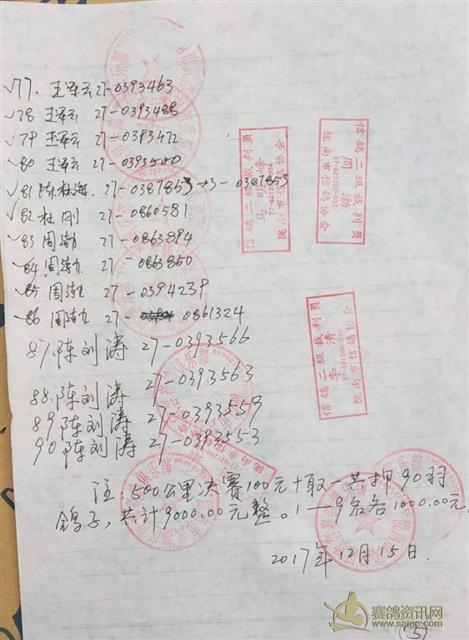 77. 王军云 27-0393463
78 王军云 27-0393488
79 王军云 27-0393472
80 王军云 27-0393500
81 陈杜海 27-0387853 → 3-0387853
82 杜刚 27-0860581
83 周渤 27-0863894
84 周渤 27-0863850
85 周渤 27-0394239
86 周渤 27- 0861324
87. 陈刘涛 27-0393566
88. 陈刘涛 27-0393563
89 陈刘涛 27-0393559
90 陈刘涛 27-0393553
注:500公里决赛100元十取一共押90羽
鸽子,共计9000.00元整。1—9名各1000.00元。
2017年12月15日.
信鸽二级裁判员
陇南市信鸽协会
信鸽二级裁判员
陇南市信鸽协会
信鸽二级裁判员
李清
陇南市信鸽协会
赛鸽资讯网
www.saigg.com
(5)